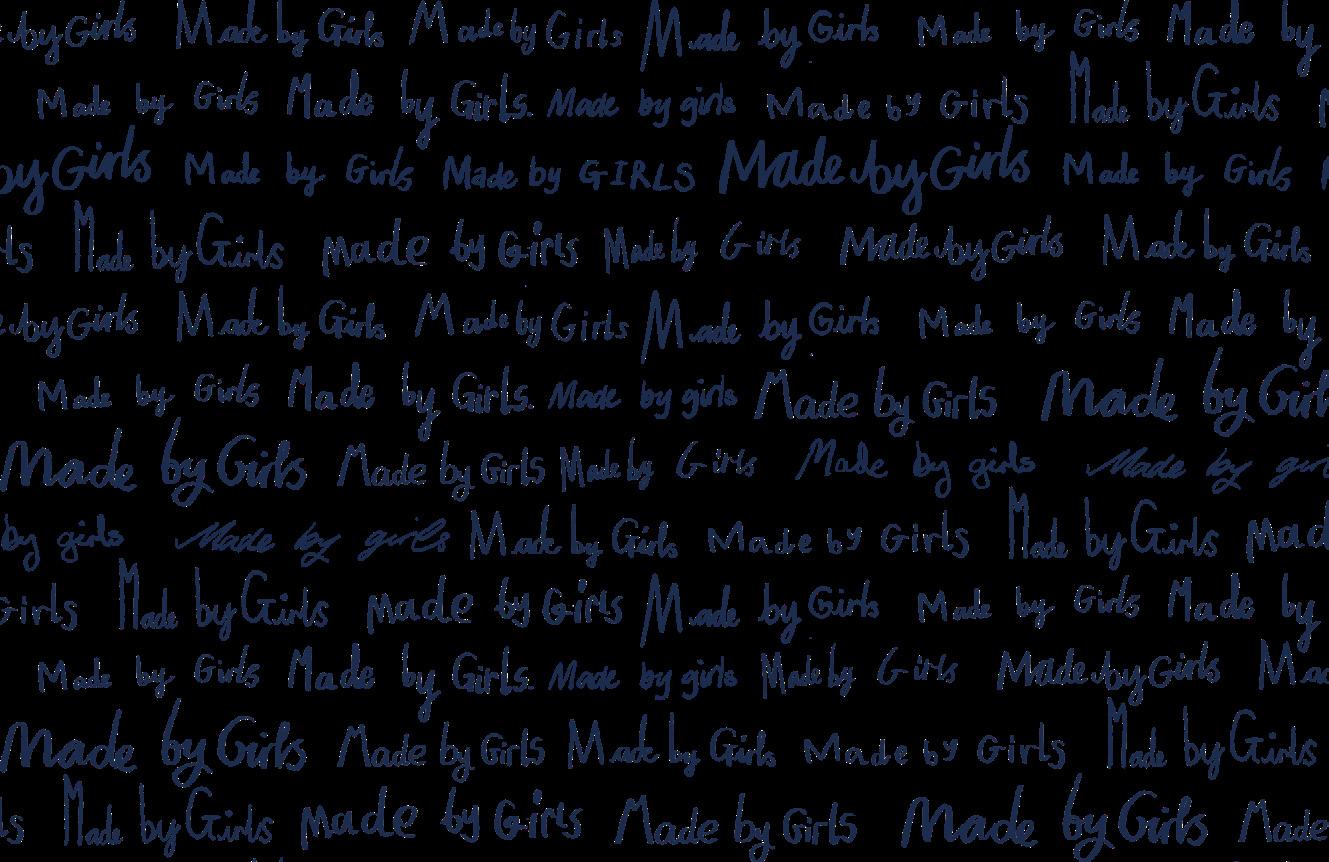 by Girls Made by Girls Made by Girls Made by Girls Made by Girls Made by
Made by Girls Made by Girls. Made by girls Made by Girls Made by Girls
by Girls Made by Girls Made by GIRLS Made by Girls Made by Girls
ls Made by Girls made by Girls Made by Girls Made by Girls Made by Girls
by Girls Made by Girls Made by Girls Made by Girls Made by Girls Made by
Made by Girls Made by Girls. Made by girls Made by Girls Made by Girl
Made by Girls Made by Girls Made by Girls Made by girls Made by girl
by girls Made by girls Made by Girls Made by Girls Made by Girls mad
Girls Made by Girls made by Girls Made by Girls Made by Girls Made by
Made by Girls Made by Girls. Made by girls Made by Girls Made by Girls Ma
Made by Girls Made by Girls Made by Girls Made by Girls Made by Girls
ls Made by Girls made by Girls Made by Girls Made by Girls Made